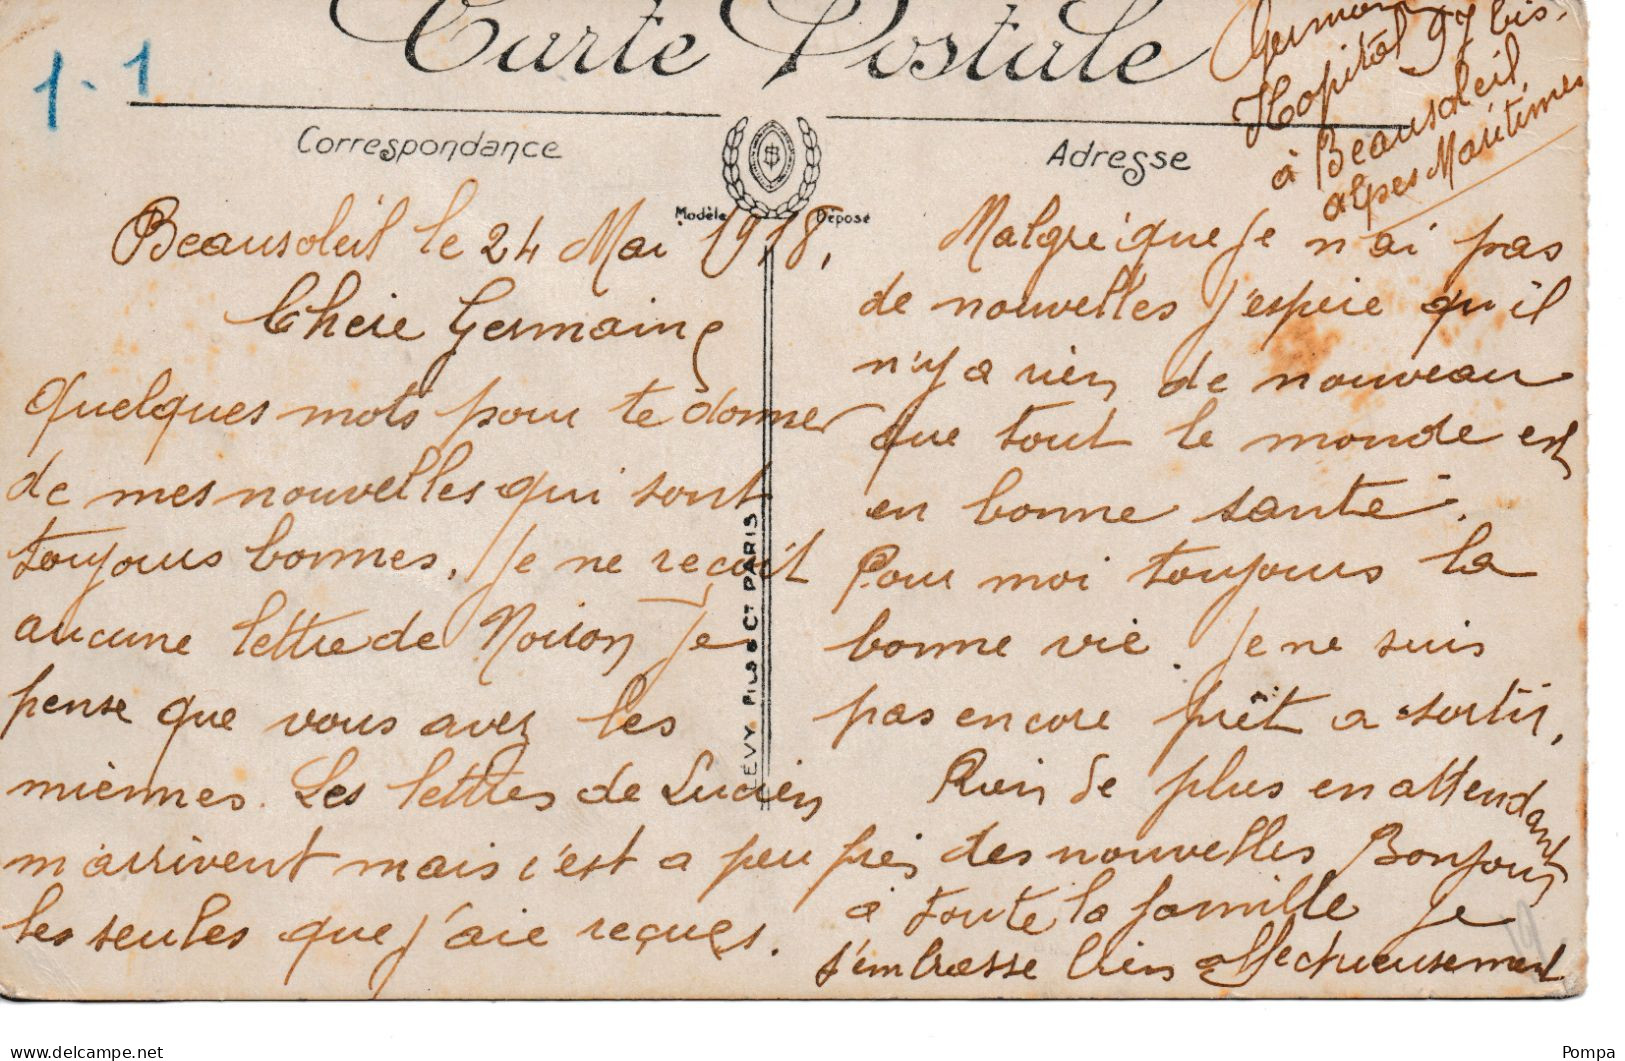 Carte Postale
1-1
Correspondance
Adresse
Modèle Déposé
LEVY FILS & Cie PARIS
Hopital 97 bis.
à Beausoleil
alpes Maritimes
Beausoleil le 24 Mai 1918,
Chere Germaine
Quelques mots pour te donner
de mes nouvelles qui sont
toujours bonnes. Je ne reçoit
aucune lettre de Noiron je
pense que vous avez les
miennes. Les lettres de Lucien
m'arrivent mais c'est a peu près
les seules que j'aie reçues.
Malgre que je n'ai pas
de nouvelles j'espere qu'il
n'y a rien de nouveau
que tout le monde est
en bonne santé.
Pour moi toujours la
bonne vie. Je ne suis
pas encore prêt a sortir,
Rien de plus en attendant
des nouvelles Bonjour
à toute la famille Je
t'embrasse bien affectueusement
19
www.delcampe.net
Pompa